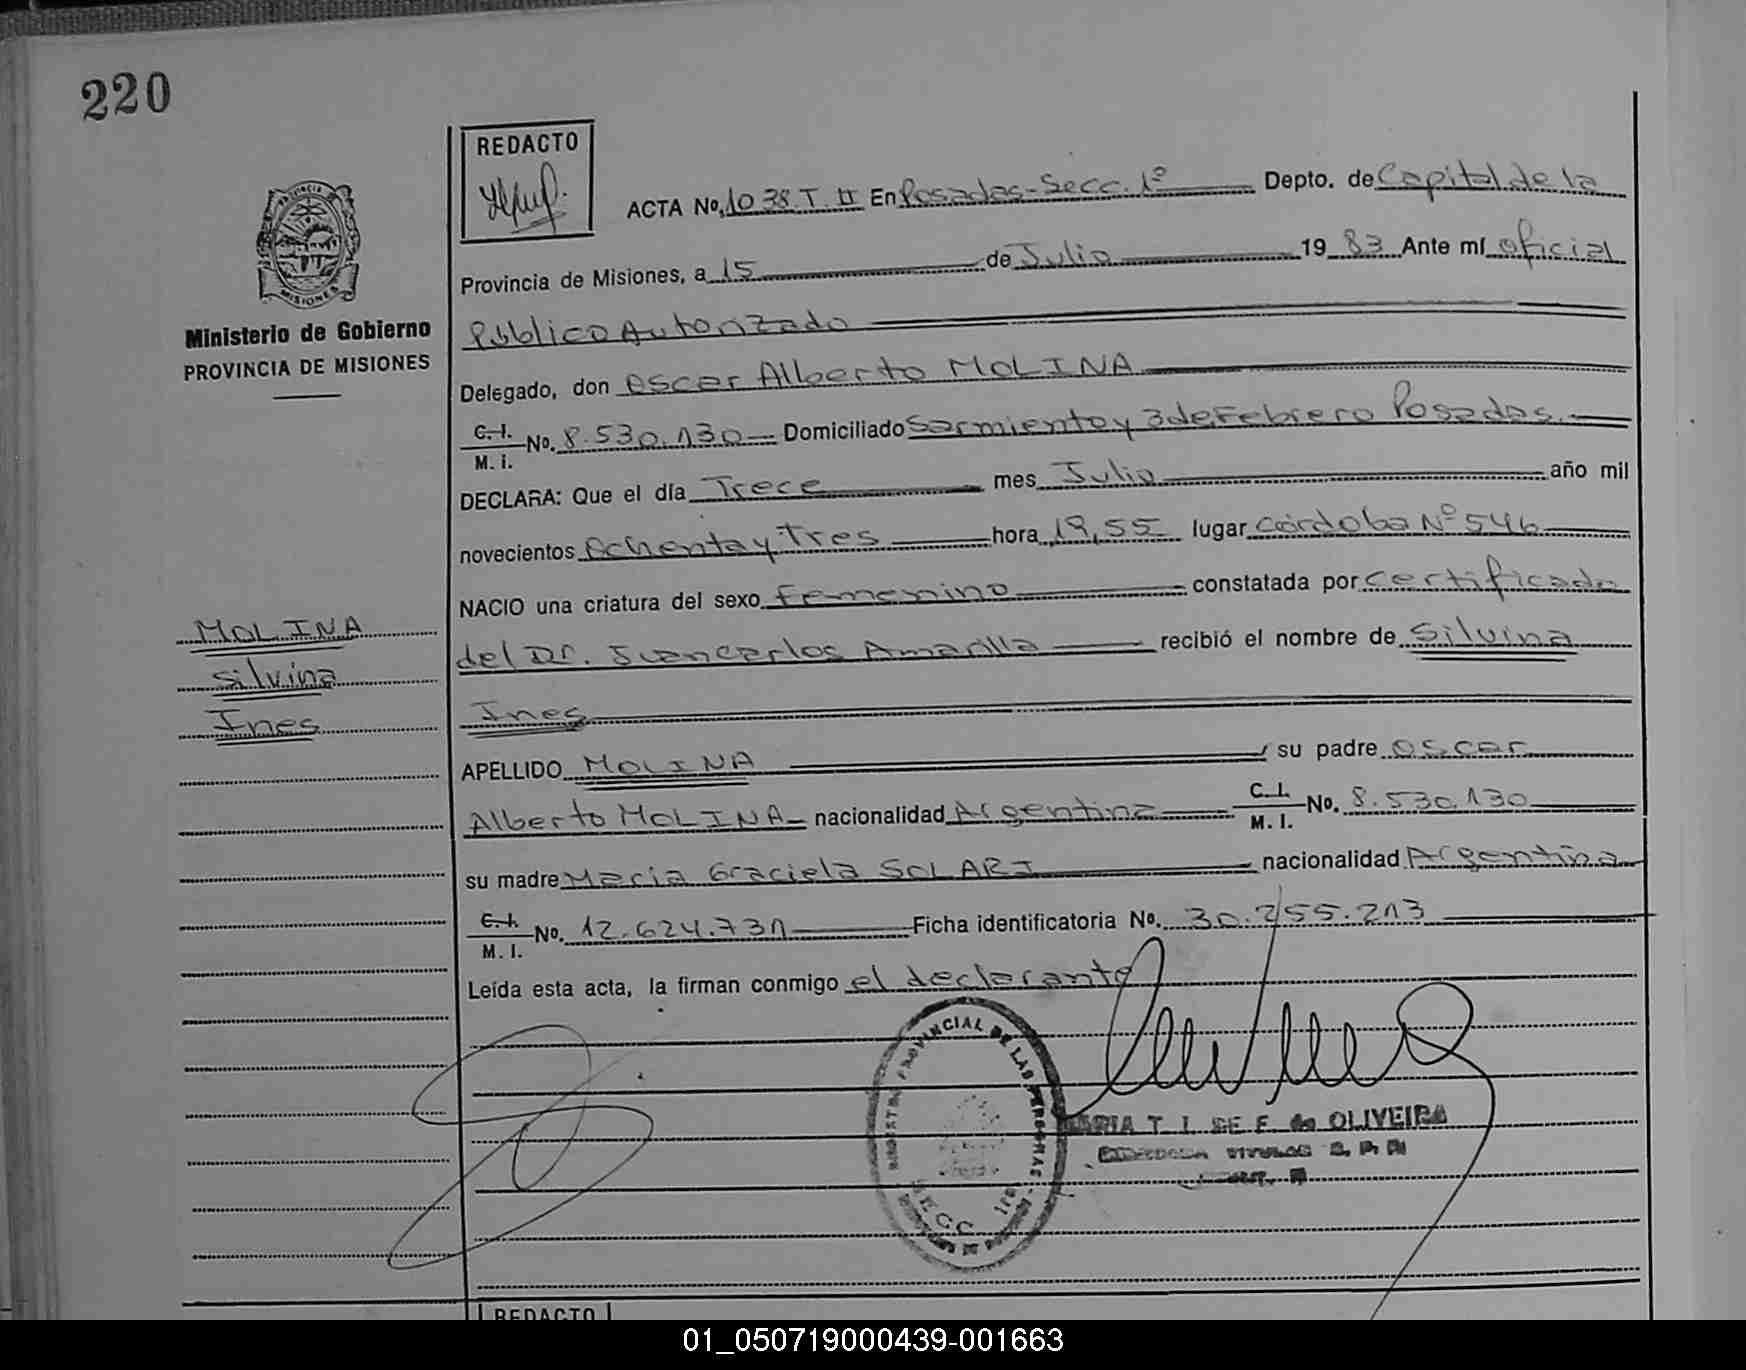 220
REDACTO
ACTA No. 1038. T. II En Posadas - Secc. 1º Depto. de Capital de la
Provincia de Misiones, a 15 de Julio 1983 Ante mí oficial
Público Autorizado
Delegado, don Oscar Alberto MOLINA
C. I. M. I. No. 8.530.130 Domiciliado Sarmiento y 3 de Febrero Posadas.
DECLARA: Que el día Trece mes Julio año mil
novecientos Ochenta y Tres hora 19,55 lugar Córdoba Nº 546
NACIO una criatura del sexo Femenino constatada por certificado
del Dr. Juan Carlos Amarilla recibió el nombre de Silvina
Ines
APELLIDO MOLINA su padre Oscar
Alberto MOLINA nacionalidad Argentina C. I. M. I. No. 8.530.130
su madre Maria Graciela SOLARI nacionalidad Argentina
C. I. M. I. No. 12.624.731 Ficha identificatoria No. 30.255.213
Leída esta acta, la firman conmigo el declarante
Ministerio de Gobierno
PROVINCIA DE MISIONES
MISIONES
MOLINA
Silvina
Ines
PROVINCIAL DE LAS PERSONAS
SECC
MARIA T. I. DE F. de OLIVEIRA
REDACTO
01_050719000439-001663